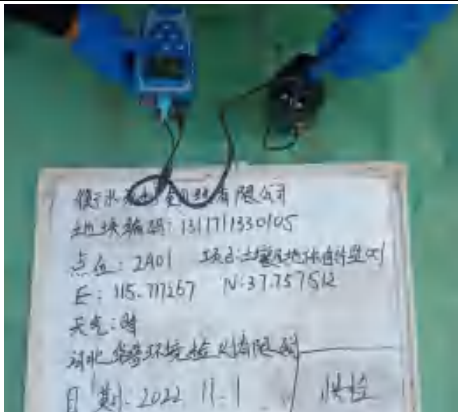 衡水 有限公司
地块编码:1311711330105
点位:2A01 项目:土壤及地下水自行监测
E: 115.717267 N:37.757512
天气:晴
河北 环境检测有限公司
日期:2022.11.1 快检